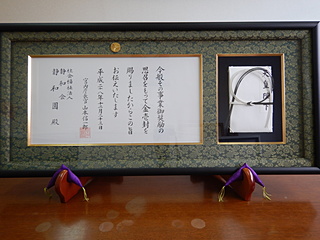 今般その事業御奨励の
思召をもって金壱封を
賜りましたからこの旨
お伝えいたします
平成二十八年十二月二十三日
宮内庁長官 山本信一郎
社会福祉法人
静和会
静和園 殿